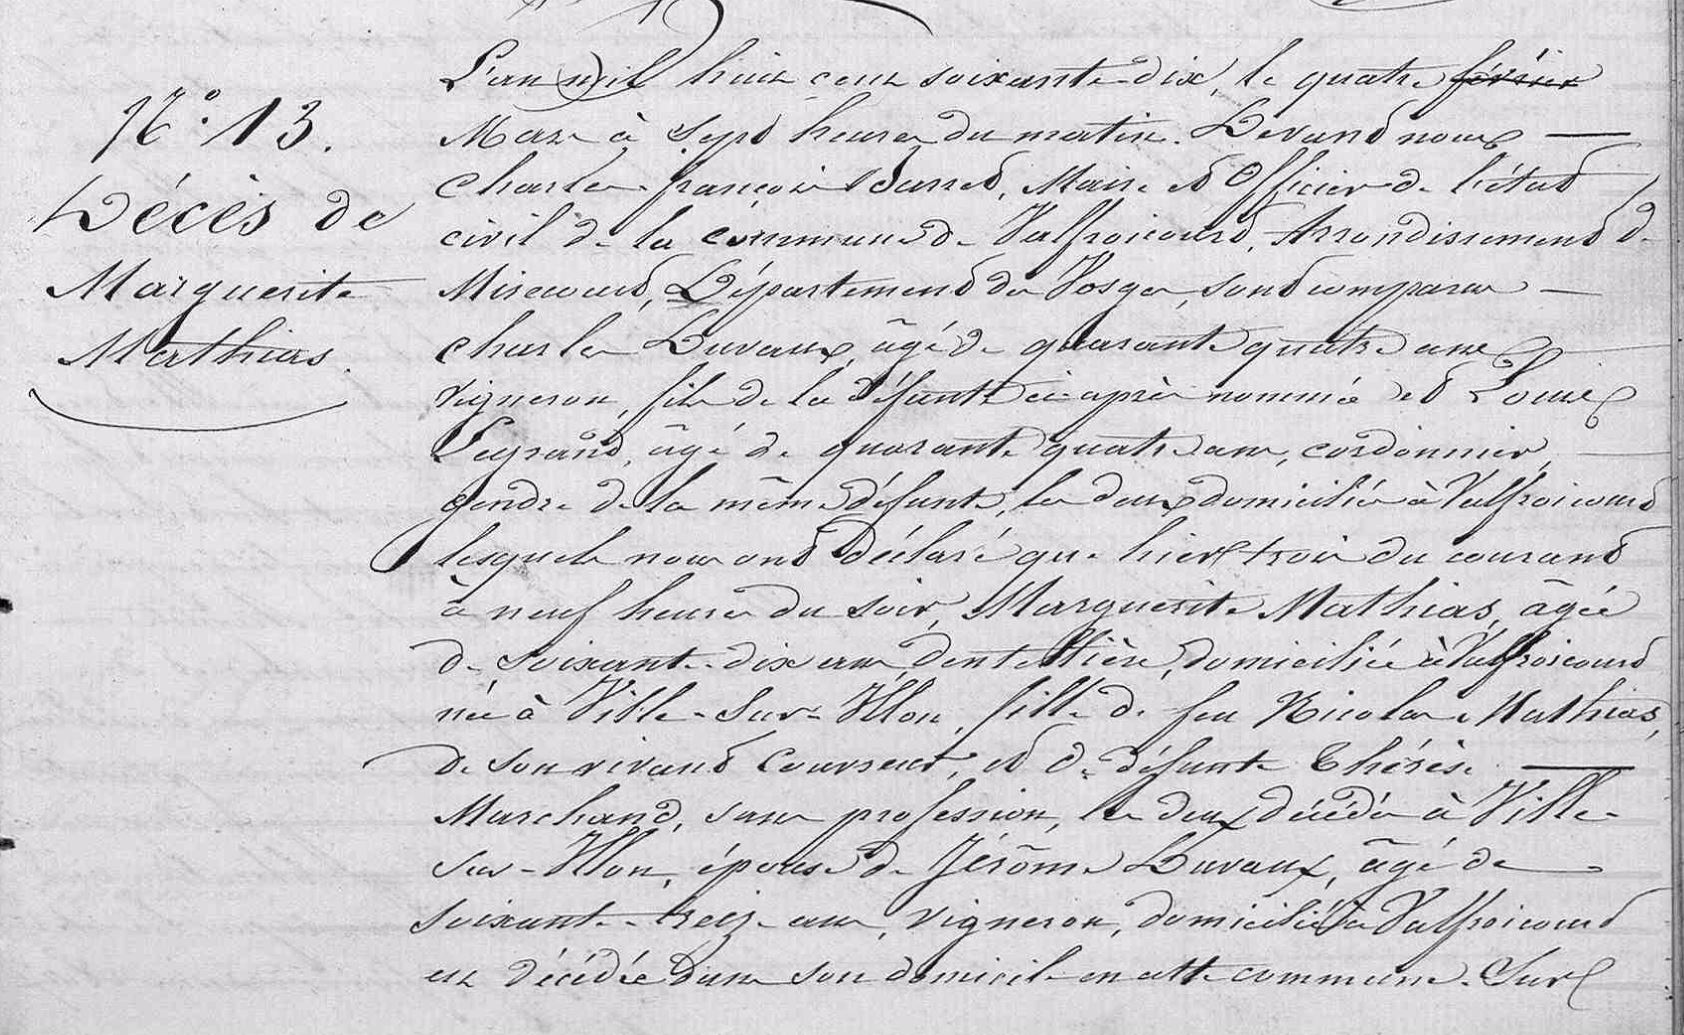 N.° 13.
Décès de
Marguerite
Mathias.
L'an mil huit cent soixante-dix, le quatre février
Mars à sept heures du matin. Devant nous
Charles-françois, Maire et Officier de l'état
civil de la commune de Valfroicourt, Arrondissement de
Mirecourt, Département des Vosges, sont comparus
Charles Duvaux, âgé de quarante quatre ans
vigneron, fils de la défunte ci-après nommée et Louis
Legrand, âgé de quarante quatre ans, cordonnier,
gendre de la même défunte, les deux domiciliés à Valfroicourt
lesquels nous ont déclaré que hier trois du courant
à neuf heures du soir, Marguerite Mathias, âgée
de soixante-dix ans, dentellière, domiciliée à Valfroicourt
née à Ville-Sur-Illon, fille de feu Nicolas Mathias,
de son vivant, et de défunte Thérèse
Marchand, sans profession, les deux décédés à Ville-
Sur-Illon, épouse de Jérôme Duvaux, âgé de
soixante-treize ans, vigneron, domicilié à Valfroicourt
est décédée dans son domicile en cette commune. Sur